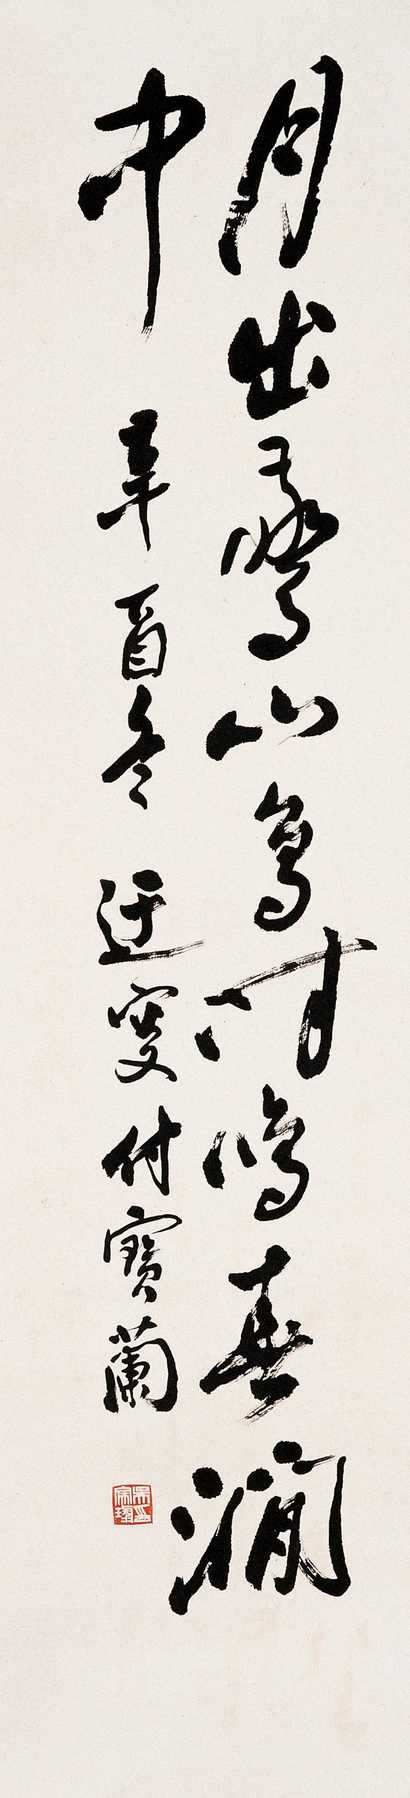 月出驚山鳥時鳴春澗
中 辛酉冬 迂叟付寶蘭